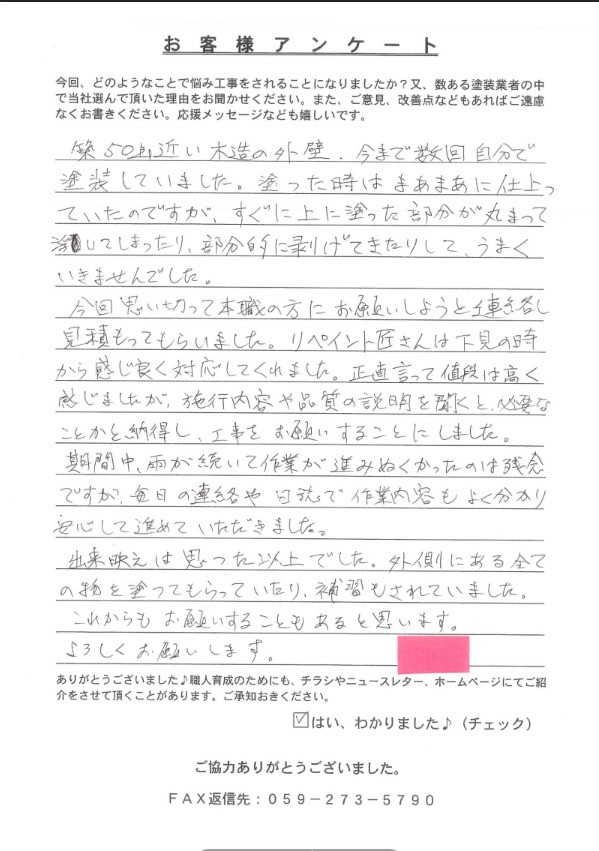 お客様アンケート
今回、どのようなことで悩み工事をされることになりましたか？又、数ある塗装業者の中
で当社選んで頂いた理由をお聞かせください。また、ご意見、改善点などもあればご遠慮
なくお書きください。応援メッセージなども嬉しいです。
築50年近い木造の外壁、今まで数回自分で
塗装していました。塗った時はまあまあに仕上っ
ていたのですが、すぐに上に塗った部分が丸まって
いてしまったり、部分的に剥げてきたりして、うまく
いきませんでした。
今回思い切って本職の方にお願いしようと連絡し
見積もってもらいました。リペイント匠さんは下見の時
から感じ良く対応してくれました。正直言って値段は高く
感じましたが、施行内容や品質の説明を聞くと、必要な
ことかと納得し、工事をお願いすることにしました。
期間中、雨が続いて作業が進みぬくかったのは残念
ですが、毎日の連絡や日誌で作業内容もよく分かり
安心して進めていただきました。
出来映えは思った以上でした。外側にある全て
の物を塗ってもらっていたり、補習もされていました。
これからもお願いすることもあると思います。
よろしくお願いします。
ありがとうございました♪職人育成のためにも、チラシやニュースレター、ホームページにてご紹
介をさせて頂くことがあります。ご承知おきください。
☑はい、わかりました♪（チェック）
ご協力ありがとうございました。
FAX返信先：059－273－5790